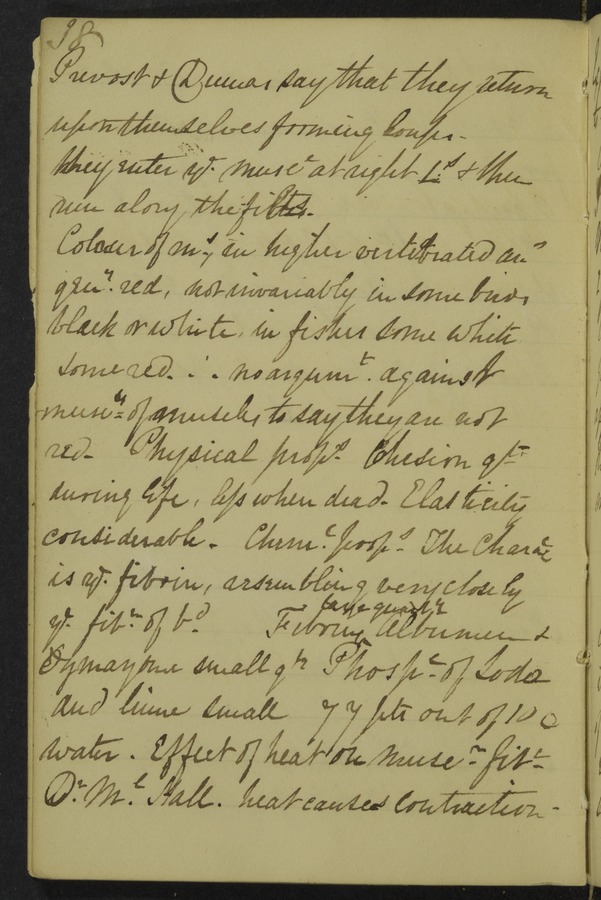 98
Prevost & Dumas say that they return
upon themselves forming loops.
they enter ye. musc at right Ls & then
run along the fibs.
Colour of ms, in higher vertebrated ans
genl. red, not invariably in some birds
black or white, in fishes some white
some red. ∴ no argumt. against
musc of muscles to say they are not
red. Physical props. Cohesion gt
during life, less when dead. Elasticity
considerable. Chemc. props. The Charc
is ye. fibrin, assembling very closely
ye fibn. of bd.
large quanty
Fibrin, Albumen &
Ozmazome small qy Phospe. of Soda
and lime small 77 pts out of 100
water. Effect of heat on musc fib
Dr. Ml. Hall. heat causes contraction.